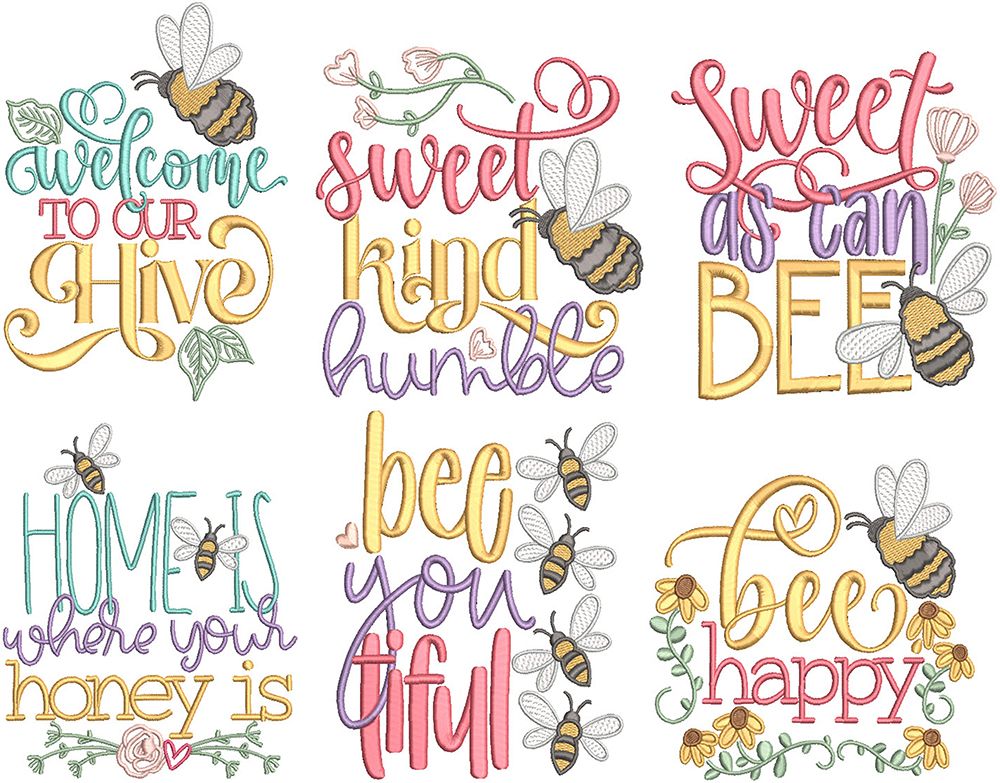 welcome
TO OUR
Hive
sweet
kind
humble
sweet
as can
BEE
HOME IS
where your
honey is
bee
you
tiful
bee
happy